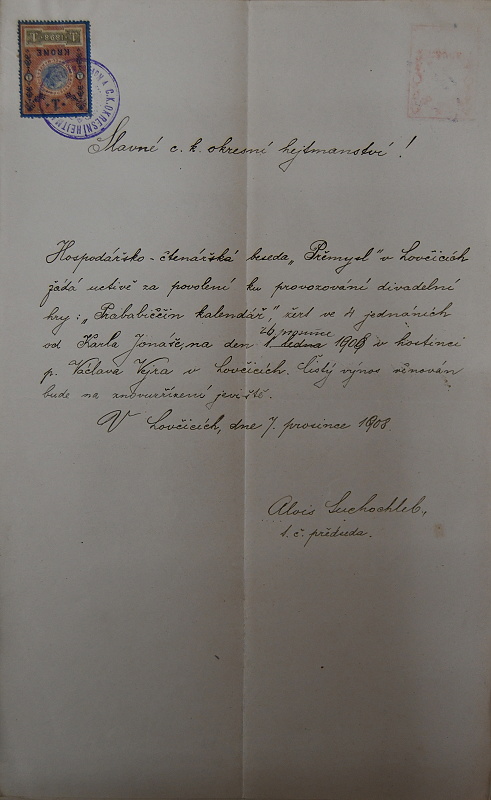 1
1898
KRONE
1
C.K. OKRESNÍ HEJTM
Slavné c. k. okresní hejtmanství!
Hospodářsko-čtenářská beseda „Přemysl" v Lovčicích
žádá uctivě za povolení ku provozování divadelní
hry: „Prababiččin kalendář", žert ve 4 jednáních
26. prosince
od Karla Jonáše, na den 1. ledna 1908 v hostinci
p. Václava Vejra v Lovčicích. Čistý výnos věnován
bude na znovuzřízení jeviště.
V Lovčicích, dne 7. prosince 1908.
Alois Suchochleb,
t. č. předseda.